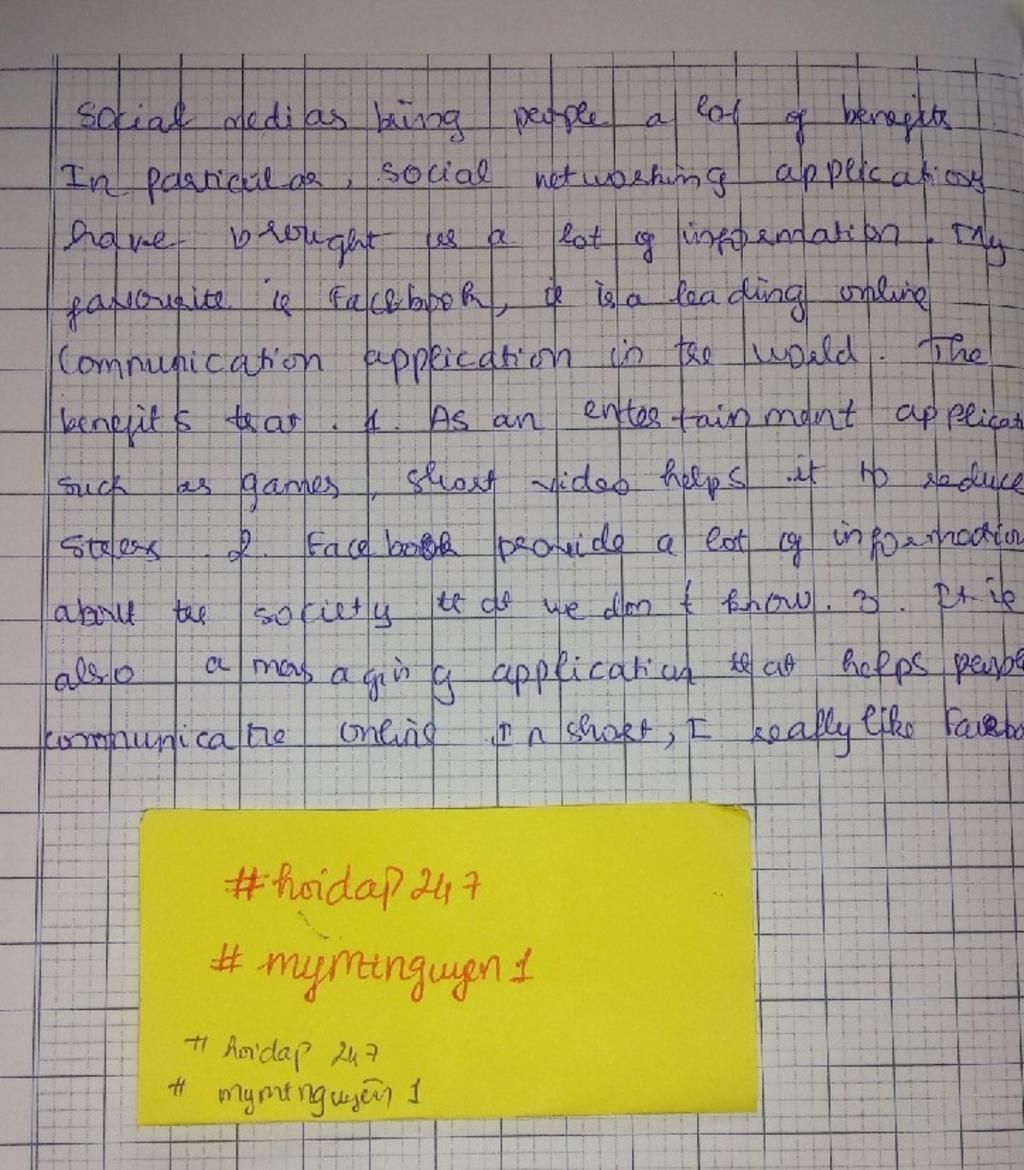 Social medias bring people a lot of benefits
In particular, social networking applications
have brought us a lot of information. My
favourite is Facebook, it is a leading online
Communication application in the world. The
benefits that. 1. As an entertainment applicat
such as games, short video helps it to reduce
stress. 2. Facebook provide a lot of information
about the society that we don't know. 3. It is
also a managing application that helps peopl
communicate online In short, I really like Facebo
#hoidap247
#mymtnguyen1
# hoidap 247
# mymtnguyen 1